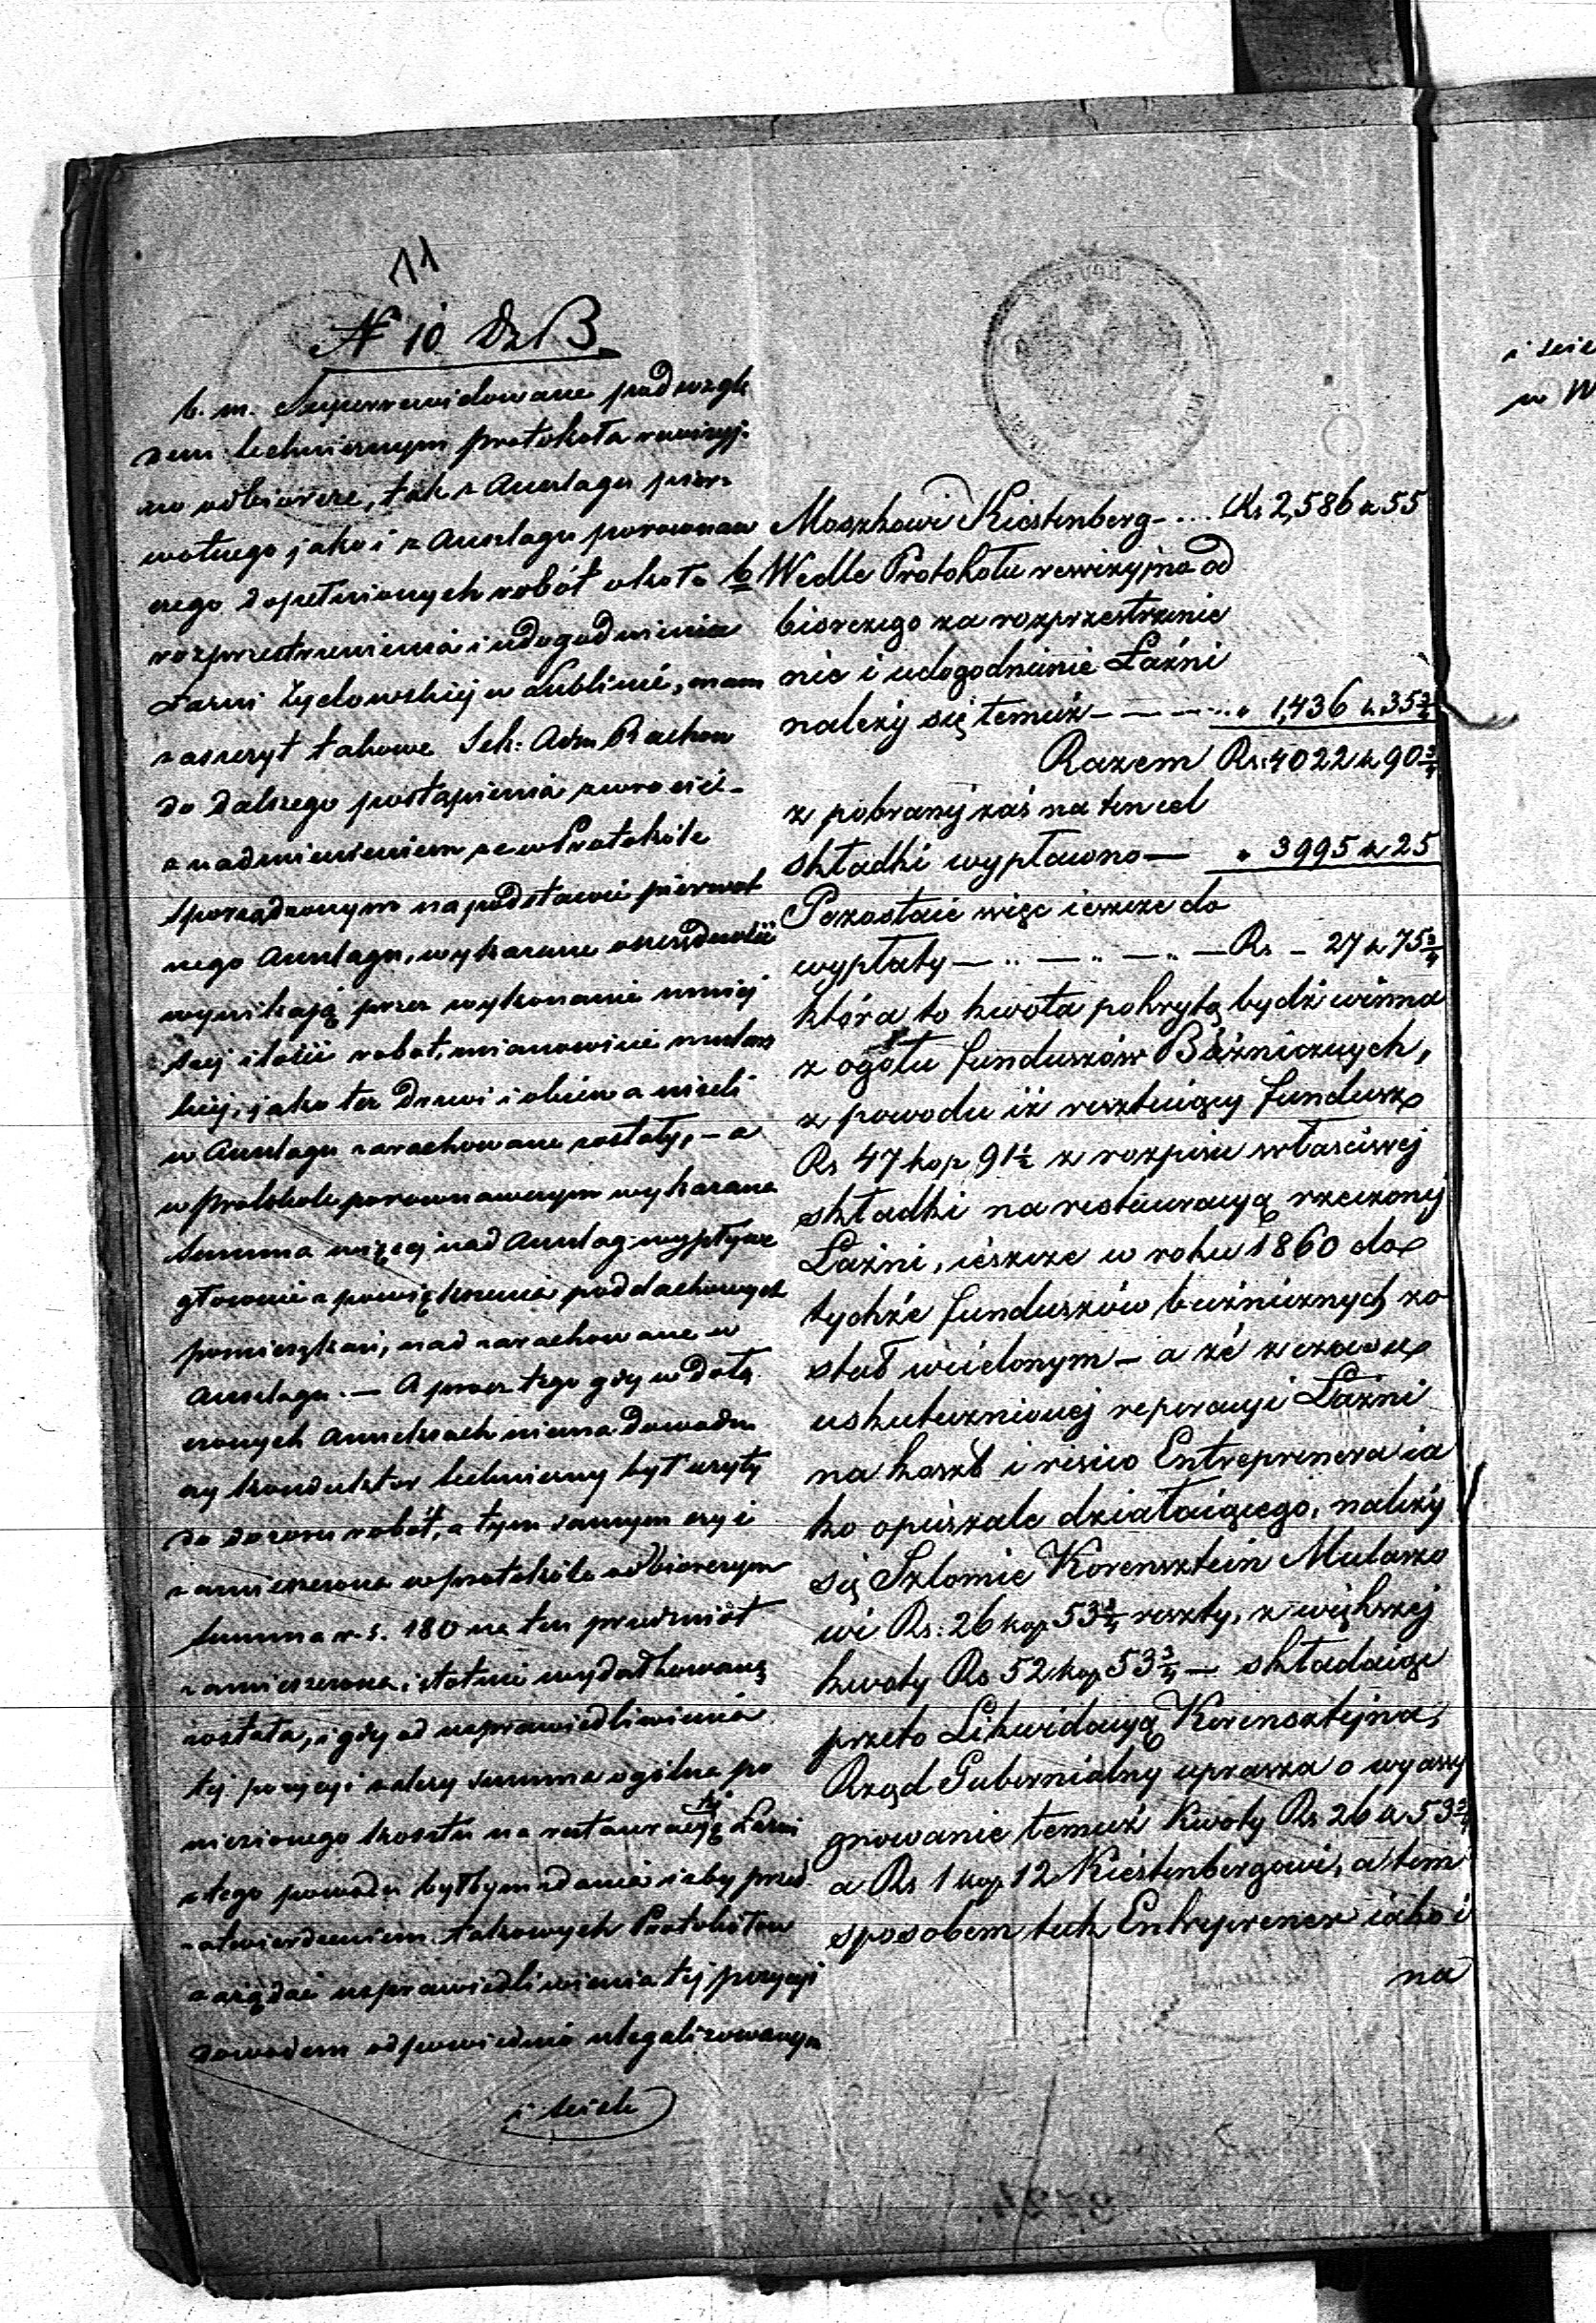 11
N 10 Dz B.
b. m. Superrewidowane pod wzglę
dem technicznym protokoła rewizyj.
no odbiorcze, tak z Anszlagu pier-
wotnego jako i z Anszlagu porownaw
czego dopełnionych robót około
rozprzestrzenienia i udogodnienia
Łazni Żydowskiej w Lublinie, mam
zaszczyt takowe Sek: Adm Rachow
do dalszego postąpienia zwrócić -
z nadmienieniem że w Protokóle
sporządzonym na podstawie pierwot
nego Anszlagu, wykazane oszczędności
wynikają przez wykonanie mniej
szej ilości robot, mianowicie mular
kiej, jako też drzwi i okien a niżeli
w Anszlagu zarachowane zostały, - a
w protokole porownawczym wykazana
summa więcej nad Anszlag wypływa
głownie z powiększenia poddachowych
pomieszkań, nad zarachowane w
Anszlagu. — A przez tego gdy w dołą
czonych Annexach niema dowodu
czy konduktor techniczny był użyty
do dozoru robót, a tym samym czy i
zamieszczona w protokóle odbiorczym
summa r. s. 180 na ten przedmiot
zamieszczona, istotnie wydatkowaną
została, i gdy od usprawiedliwienia
tej pozycyi zależy summa ogólna po
niesionego kosztu na restauracyję Łazni
z tego powodu byłbym zdania iżby przed
zatwierdzeniem takowych Protokółow
zażądać usprawiedliwienia tej pozycyi
dowodem odpowiednio ulegalizowanym
Moszkowi Kiestenberg - .... Rs 2,586 k 55
b Wedle Protokołu rewizyjno od
biorczego za rozprzestrzenie
nie i udogodnienie Łaźni
należy się temuż — — — " 1,436 k 35 3/4
Razem Rs: 4022 k 90 3/4
z pobranej zaś na ten cel
składki wypłacono — " 3995 k 25
Pozostaie więc ieszcze do
wypłaty — " — " — " — Rs - 27 k 75 3/4
która to kwota pokrytą bydź winna
z ogołu funduszów Bóżniczych,
z powodu iż resztuiący fundusz
Rs 47 kop 91 1/2 z rozpisu właściwej
składki na restauracyą rzeczonej
Łaźni, ieszcze w roku 1860 do
tychże funduszów bużnicznych zo
stał wcielonym - a że z czasu
uskutecznionej reperacyi Łaźni
na koszt i risico Entreprenera ia
ko opieszale działaiącego, należy
się Szlomie Korensztein Mularzo
wi Rs: 26 kop 53 3/4 reszty, z większej
kwoty Rs 52 kop 53 3/4 — składaiąc
przeto Likwidacyą Korensztejna,
Rząd Gubernialny uprasza o wyassy
gnowanie temuż kwoty Rs 26 k 53 3/4
a Rs 1 kop 12 Kiestenbergowi, a tem
sposobem tak Entreprener iako i
na